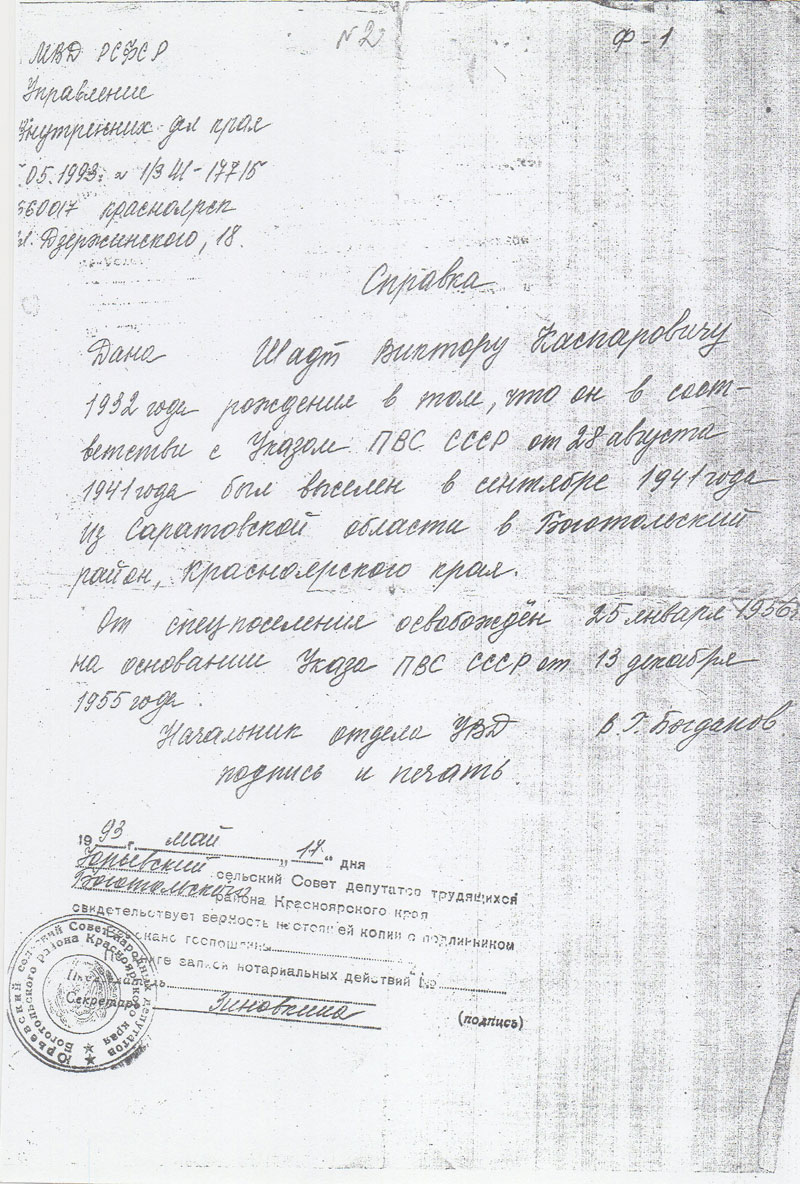 №2 Ф-1
МВД РСФСР
Управление
Внутренних дел края
.05.1993г. № 1/3 41-17715
660017 красноярск
ул. Дзержинского, 18.
Справка
Дана Шадт Виктору Каспаровичу
1932 года рождения в том, что он в соот-
ветстви с Указом ПВС СССР от 28 августа
1941 года был выселен в сентябре 1941 года
из Саратовской области в Боготольский
район, Красноярского края.
От спецпоселения освобождён 25 января 1956г
на основании Указа ПВС СССР от 13 декабря
1955 года.
Начальник отдела УВД В.Г. Богданов.
подпись и печать.
1993 г. май „17." дня
Юрьевский сельский Совет депутатов трудящихся
Боготольского района Красноярского края
свидетельствует верность настоящей копии с подлинником
госпошлины
записи нотариальных действий №
Секретарь Зиновкина
(подпись)
Юрьевский сельский Совет народных депутатов
Боготольского района Красноярского края